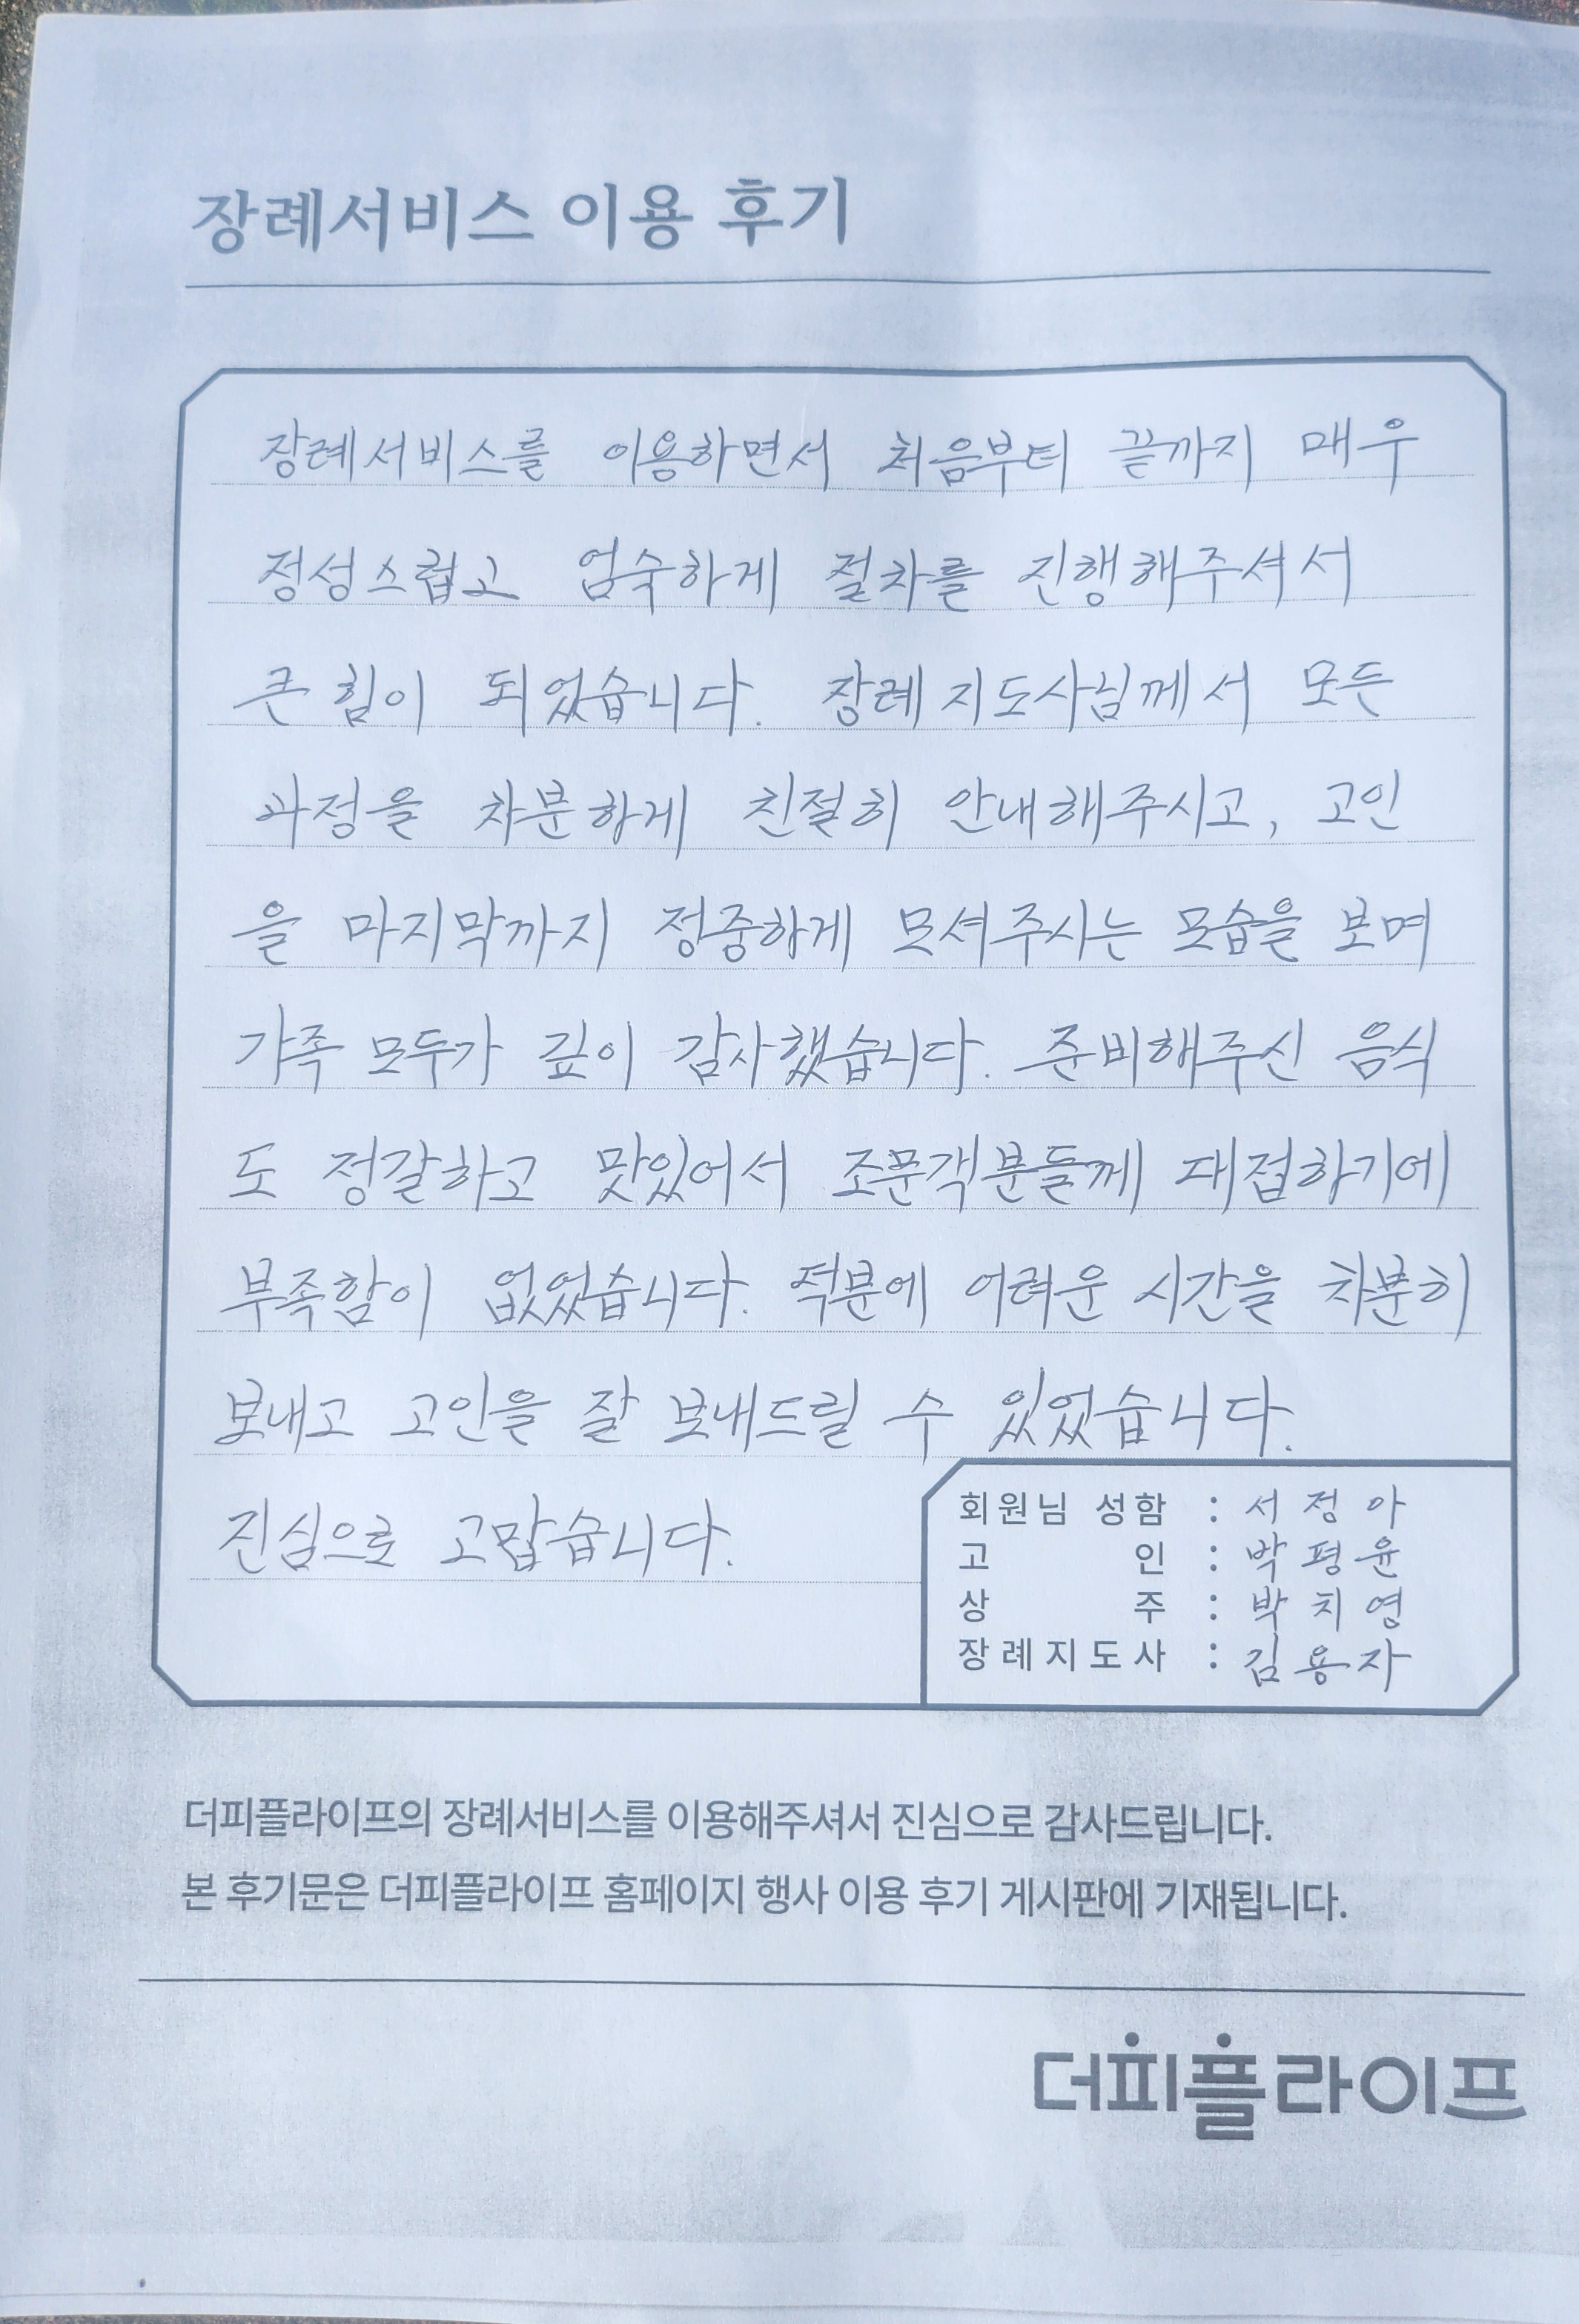 장례서비스 이용 후기
장례서비스를 이용하면서 처음부터 끝까지 매우
정성스럽고 엄숙하게 절차를 진행해주셔서
큰 힘이 되었습니다. 장례지도사님께서 모든
과정을 차분하게 친절히 안내해주시고, 고인
을 마지막까지 정중하게 모셔주시는 모습을 보며
가족 모두가 깊이 감사했습니다. 준비해주신 음식
도 정갈하고 맛있어서 조문객분들께 대접하기에
부족함이 없었습니다. 덕분에 어려운 시간을 차분히
보내고 고인을 잘 보내드릴 수 있었습니다.
진심으로 고맙습니다.
회원님 성함 : 서정아
고 인 : 박평윤
상 주 : 박치영
장례지도사 : 김용자
더피플라이프의 장례서비스를 이용해주셔서 진심으로 감사드립니다.
본 후기문은 더피플라이프 홈페이지 행사 이용 후기 게시판에 기재됩니다.
더피플라이프